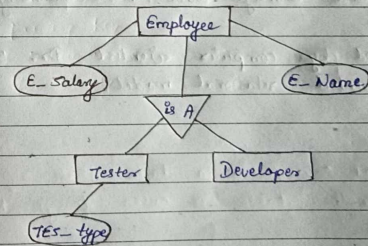 Employee
E_Salary
E_Name
is A
Tester
Developer
TES_type